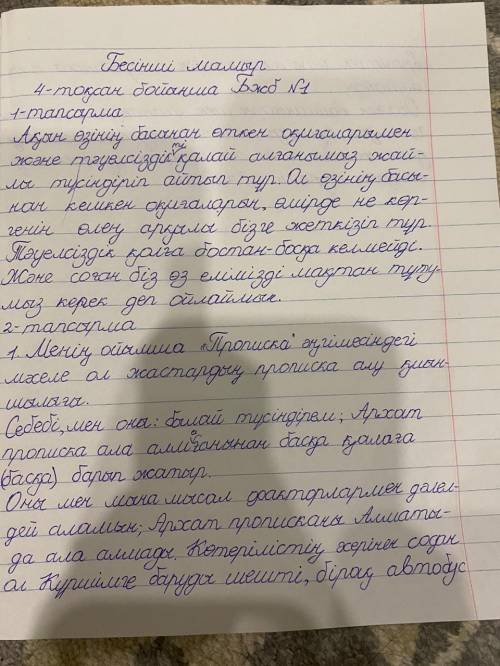 Бесінші мамыр
4-тоқсан бойынша Бжб №1
1-тапсырма
Ақын өзінің басынан өткен оқиғаларымен
және тәуелсіздікті қалай алғанымыз жай-
лы түсіндіріп айтып тұр. Ол өзінің басы-
нан кешкен оқиғаларын, өмірде не көр-
генін өлең арқылы бізге жеткізіп тұр.
Тәуелсіздік қазаққа бостан-босқа келмейді.
Және соған біз өз елімізді мақтан тұту-
мыз керек деп ойлаймын.
2-тапсырма
1. Менің ойымша "Прописка" әңгімесіндегі
мәселе ол жастардың прописка алу қиын-
шылығы.
Себебі, мен оны: былай түсіндірем; Архат
прописка ала алмағанынан басқа қалаға
(басқа) барып жатыр.
Оны мен мына мысал факторлармен дәлел-
дей аламын; Архат прописканы Алматы-
да ала алмады. Көтерілістің әсерінен содан
ол Күршімге баруды шешті, бірақ автобус